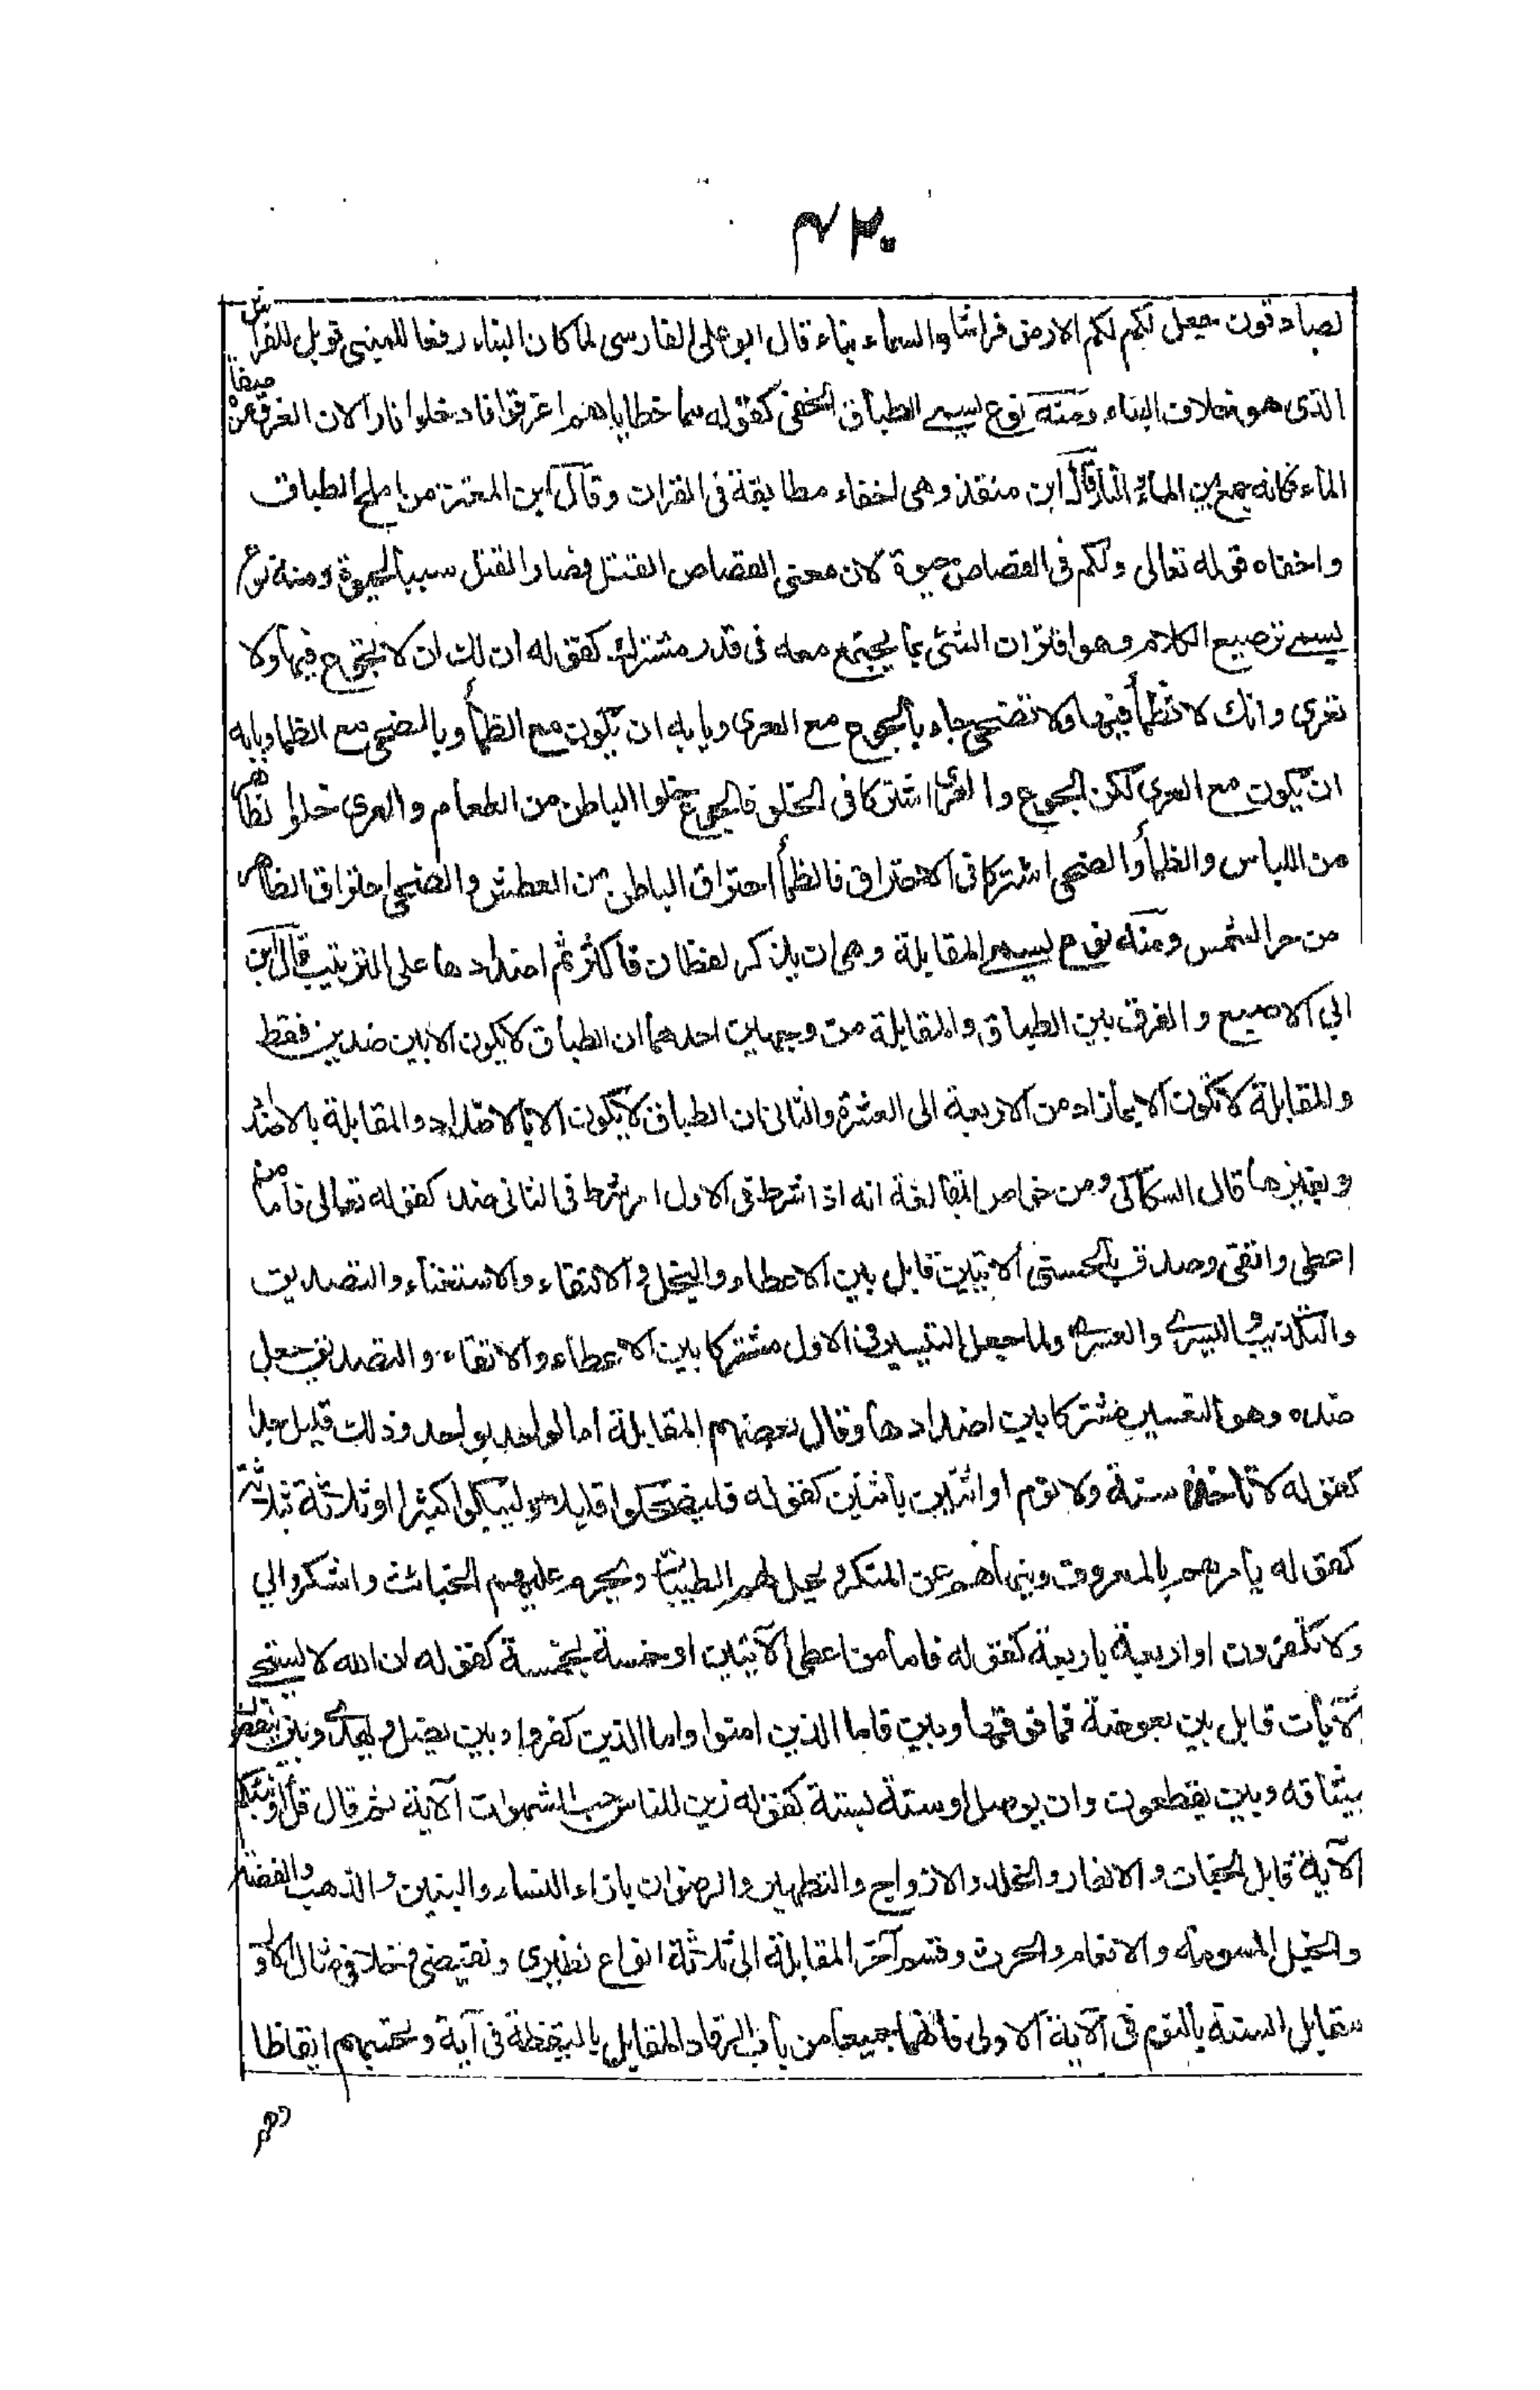 ٤٣٠
لصادقون جعل لكم لكم الارض فراشا والسماء بناء قال ابو على الفارسى لما كان البناء رفعا للمبنى قوبل للفراش
الذى هو خلاف البناء ومنه نوع يسمى الطباق الخفى كقوله مما خطاياهم اغرقوا فادخلوا نارا لان الغرق من صفة
الماء فكانه جمع بين الماء والنار قال ابن منقذ وهى اخفاء مطابقة فى القران وقال ابن المعتز من املح الطباق
واخفاه قوله تعالى ولكم فى القصاص حيوة لان معنى القصاص القتل فصار القتل سبب الحيوة ومنه نوع
يسمى ترصيع الكلام وهو اقتران الشئ بما يجتمع معه فى قدر مشترك كقوله ان لك ان لا تجوع فيها ولا
تعرى وانك لا تظمأ فيها ولا تضحى جاء بالجوع مع العرى وبابه ان يكون مع الظمأ وبالضحى مع الظما وبابه
ان يكون مع العرى لكن الجوع والعرى اشتركا فى الخلو فالجوع خلو الباطن من الطعام والعرى خلو الظاهر
من اللباس والظمأ والضحى اشتركا فى الاحتراق فالظمأ احتراق الباطن من العطش والضحى احتراق الظاهر
من حر الشمس ومنه نوع يسمى المقابلة وهى ان يذكر لفظان فاكثر ثم اضدادها على الترتيب قال ابن
ابى الاصبع والفرق بين الطباق والمقابلة من وجهين احدهما ان الطباق لا يكون الا بين ضدين فقط
والمقابلة لا تكون الا بما زاد من الاربعة الى العشرة والثانى ان الطباق لا يكون الا بالاضداد والمقابلة بالاضداد
وبغيرها قال السكاكى ومن خواص المقابلة انه اذا شرط فى الاول امر شرط فى الثانى ضده كقوله تعالى فاما من
اعطى واتقى وصدق بالحسنى الآيتين قابل بين الاعطاء والبخل والاتقاء والاستغناء والتصديق
والتكذيب واليسرى والعسرى ولما جعل التيسير فى الاول مشتركا بين الاعطاء والاتقاء والتصديق جعل
ضده وهو التعسير مشتركا بين اضدادها وقال بعضهم المقابلة اما لواحد بواحد وذلك قليل جدا
كقوله لا تاخذه سنة ولا نوم او اثنين باثنين كقوله فليضحكوا قليلا وليبكوا كثيرا او ثلاثة بثلاثة
كقوله يأمرهم بالمعروف وينهاهم عن المنكر ويحل لهم الطيبات ويحرم عليهم الخبائث واشكروا لى
ولا تكفرون او اربعة باربعة كقوله فاما من اعطى الآيتين او خمسة بخمسة كقوله ان الله لا يستحى
الآيات قابل بين بعوضة فما فوقها وبين فاما الذين امنوا واما الذين كفروا وبين يضل ويهدى وبين ينقضون
ميثاقه وبين يقطعون وان يوصل او ستة بستة كقوله زين للناس حب الشهوات الآية ثم قال قل أؤنبئكم
الآية قابل الجنات والانهار والخلد والازواج والتطهير والرضوان بازاء النساء والبنين والذهب والفضة
والخيل المسومة والانعام والحرث وقسم آخر المقابلة الى ثلاثة انواع نظيرى ونقيضى وخلافى مثال الاول
مقابل السنة بالنوم فى الآية الاولى فانهما جميعا من باب الرقاد المقابل باليقظة فى آية وتحسبهم ايقاظا
وهم